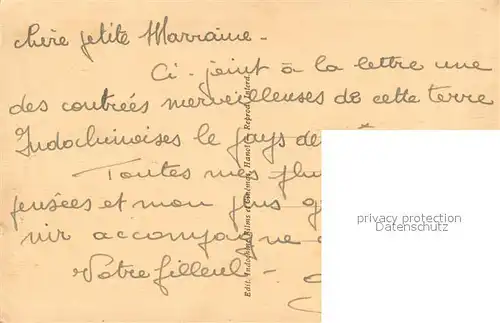 chère petite Marraine -
Ci-joint à la lettre une
des contrées merveilleuses de cette terre
Indochinoises le pays de
Toutes mes
pensées et mon plus
nir accompagne
Votre filleul -
Edit. Indochine Films et Cinémas, Hanoï Reprod. Interd.
privacy protection